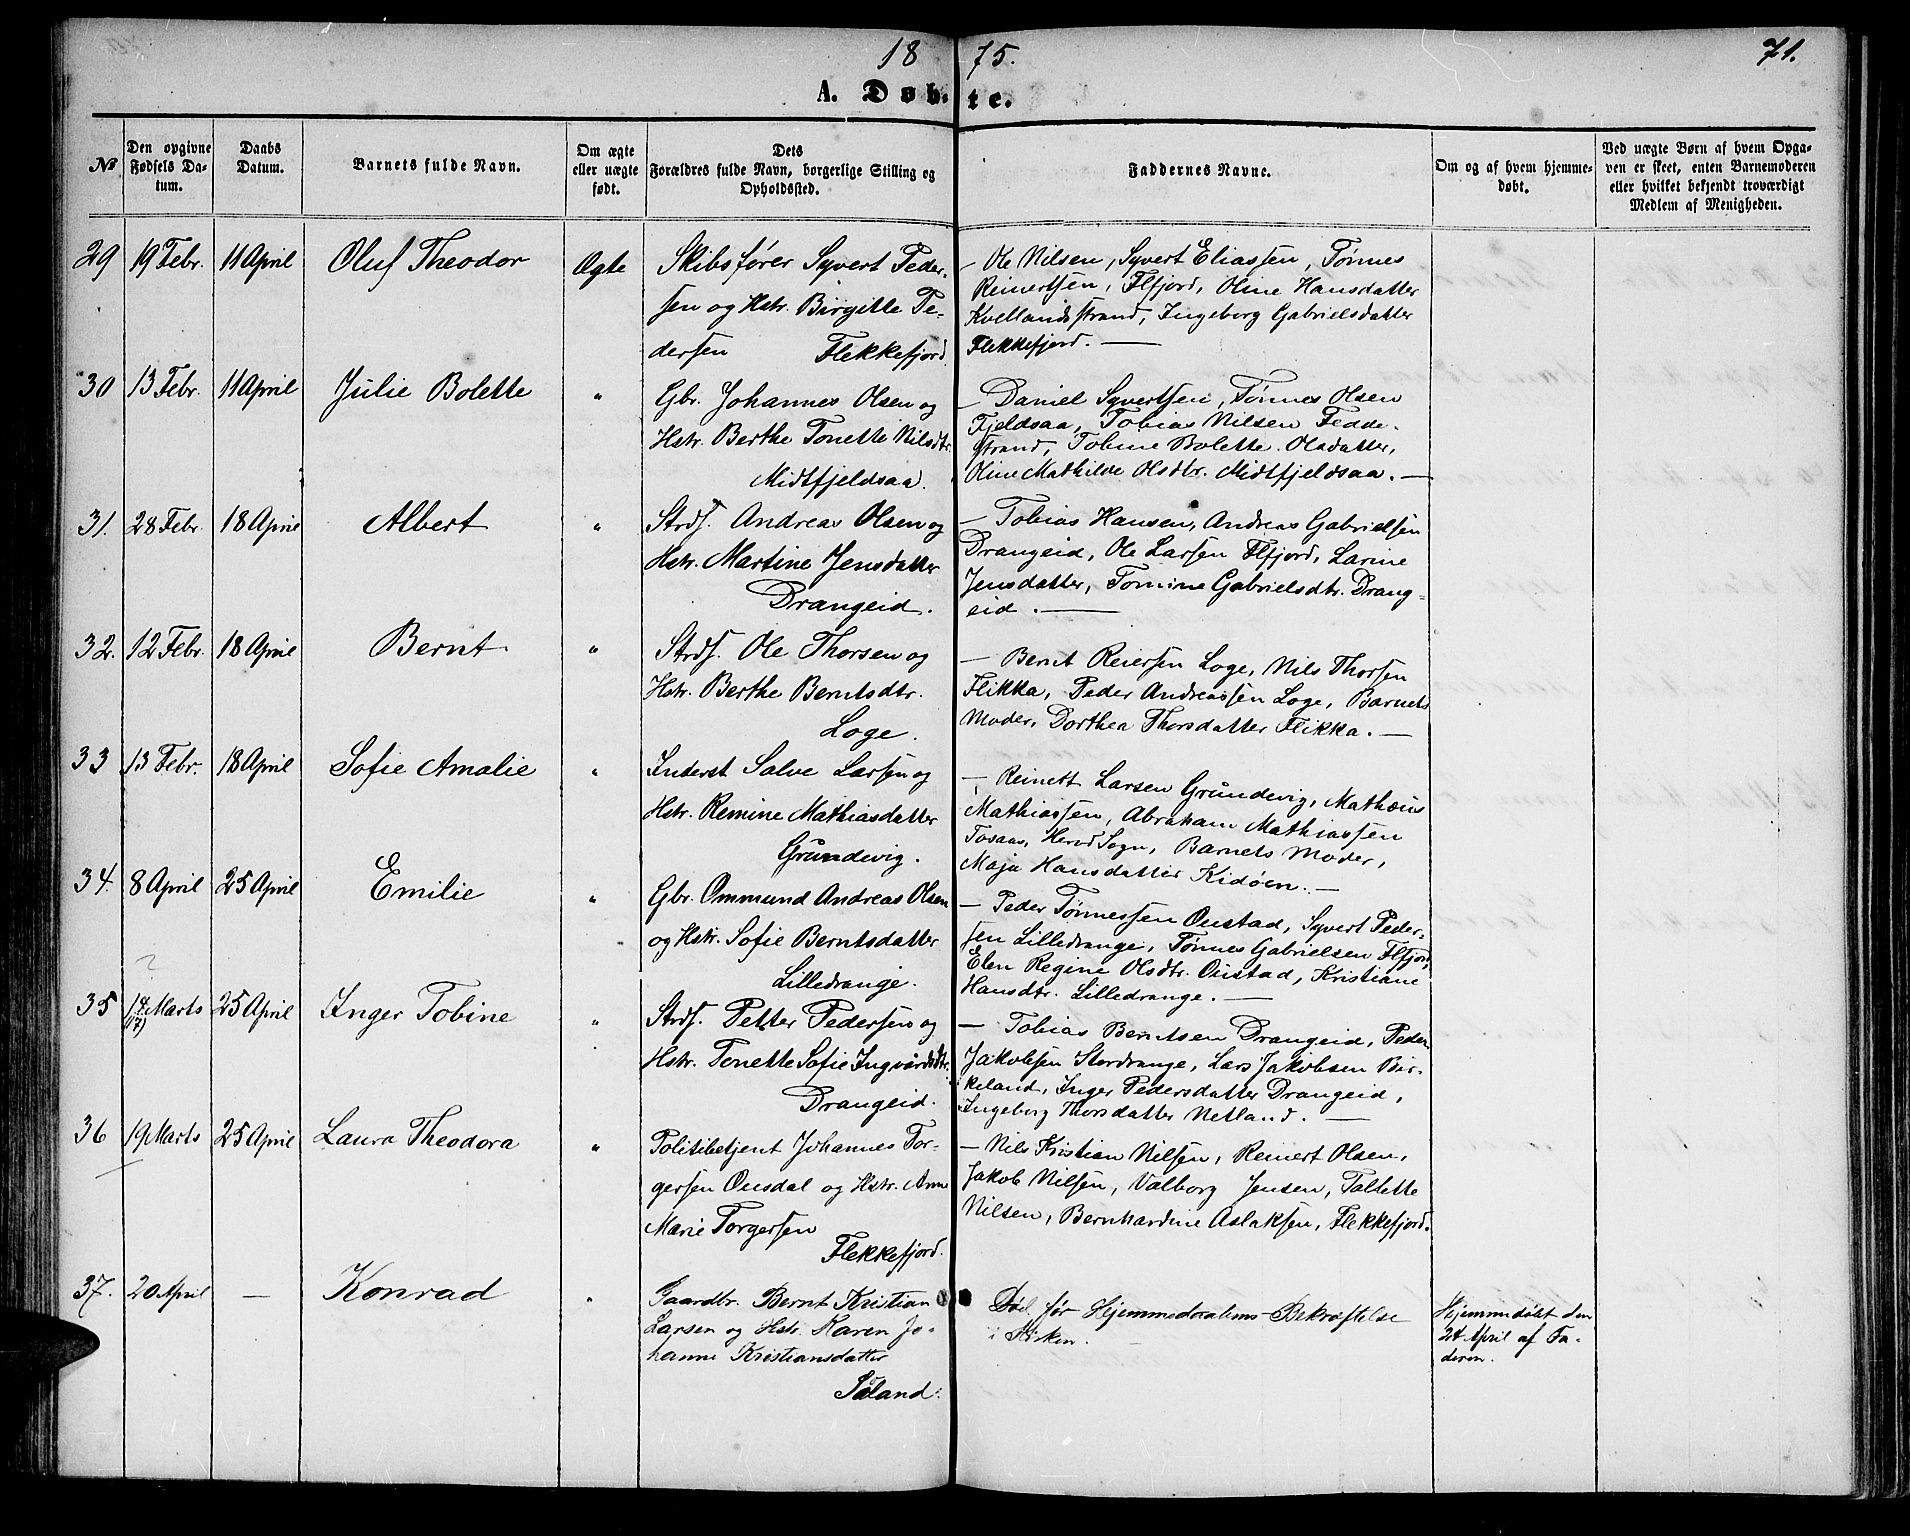 1875. 71.
A. Døbte.
№ Den opgivne Fødsels Datum. Daabs Datum. Barnets fulde Navn. Om ægte eller uægte født. Dets Forældres fulde Navn, borgerlige Stilling og Opholdssted. Faddernes Navne. Om og af hvem hjemmedøbt. Ved uægte Børn af hvem Opgaven er skeet, enten Barnemoderen eller hvilket bekjendt troværdigt Medlem af Menigheden.
29 19 Febr. 11 April Oluf Theodor Ægte Skibsfører Syvert Peder-
sen og Hstr. Birgitte Pe-
dersen Flekkefjord.
— Ole Nilsen, Syvert Eliassen, Tønnes
Reinertsen, Flfjord, Oline Hansdatter
Kvellandsstrand, Ingeborg Gabrielsdatter
Flekkefjord. —
30 13 Febr. 11 April Julie Bolette " Gbr. Johannes Olsen og
Hstr. Berthe Tonette Nilsdtr.
Midtfjeldsaa.
— Daniel Syvertsen, Tønnes Olsen
Fjeldsaa, Tobias Nilsen Fedde-
strand, Tobine Bolette Olsdatter,
Oline Mathilde Olsdtr. Midtfjeldsaa. —
31. 28 Febr. 18 April Albert " Strds. Andreas Olsen og
Hstr. Martine Jensdatter
Drangeid.
— Tobias Hansen, Andreas Gabrielsen
Drangeid, Ole Larsen Flfjord, Larine
Jensdatter, Tomine Gabrielsdtr. Drang-
eid. —
32. 12 Febr. 18 April Bernt " Strds. Ole Thorsen og
Hstr. Berthe Berntsdtr.
Loge.
— Bernt Reiersen Loge, Nils Thorsen
Flikka, Peder Andreassen Loge, Barnets
Moder, Dorthea Thorsdatter Flikka. —
33 13 Febr. 18 April Sofie Amalie " Inderst Salve Larsen og
Hstr. Remine Mathiasdatter
Grundevig.
— Reinert Larsen Grundevig, Mathæus
Mathiassen, Abraham Mathiassen
Tosaas, Herred Sogn, Barnets Moder,
Maja Hansdatter Kidøen. —
34. 8 April 25 April Emilie " Gbr. Ommund Andreas Olsen
og Hstr. Sofie Berntsdatter
Lilledrange.
— Peder Tønnessen Oustad, Syvert Peder-
sen Lilledrange, Tønnes Gabrielsen Flfjord,
Elen Regine Olsdtr. Oustad, Kristiane
Hansdtr. Lilledrange. —
?
35 14 Marts 25 April Inger Tobine " Strds. Petter Pedersen og
(17)
Hstr. Tonette Sofie Ingvardsdtr.
Drangeid.
— Tobias Berntsen Drangeid, Peder
Jakobsen Stordrange, Lars Jakobsen Bir-
keland, Inger Pedersdatter Drangeid,
Ingeborg Thorsdatter Netland. —
36 19 Marts 25 April Laura Theodora " Politibetjent Johannes Tor-
gersen Ousdal og Hstr. Anne
Marie Torgersen
Flekkefjord.
— Nils Kristian Nilsen, Reinert Olsen,
Jakob Nilsen, Valborg Jensen, Tallette
Nilsen, Bernhardine Aslaksen, Flekkefjord.
37. 20 April — Konrad " Gaardbr. Bernt Kristian
Larsen og Hstr. Karen Jo-
hanne Kristiansdatter
Søland.
Død før Hjemmedaabens Bekræftelse
i Kirken.
Hjemmedøbt den
24 April af Fa-
deren.